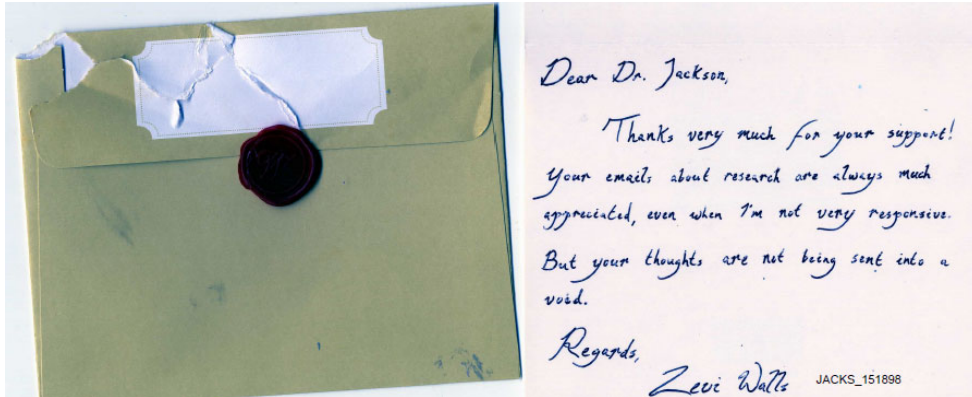 Dear Dr. Jackson,
Thanks very much for your support!
Your emails about research are always much
appreciated, even when I'm not very responsive.
But your thoughts are not being sent into a
void.
Regards,
Zevi Walls
JACKS_151898